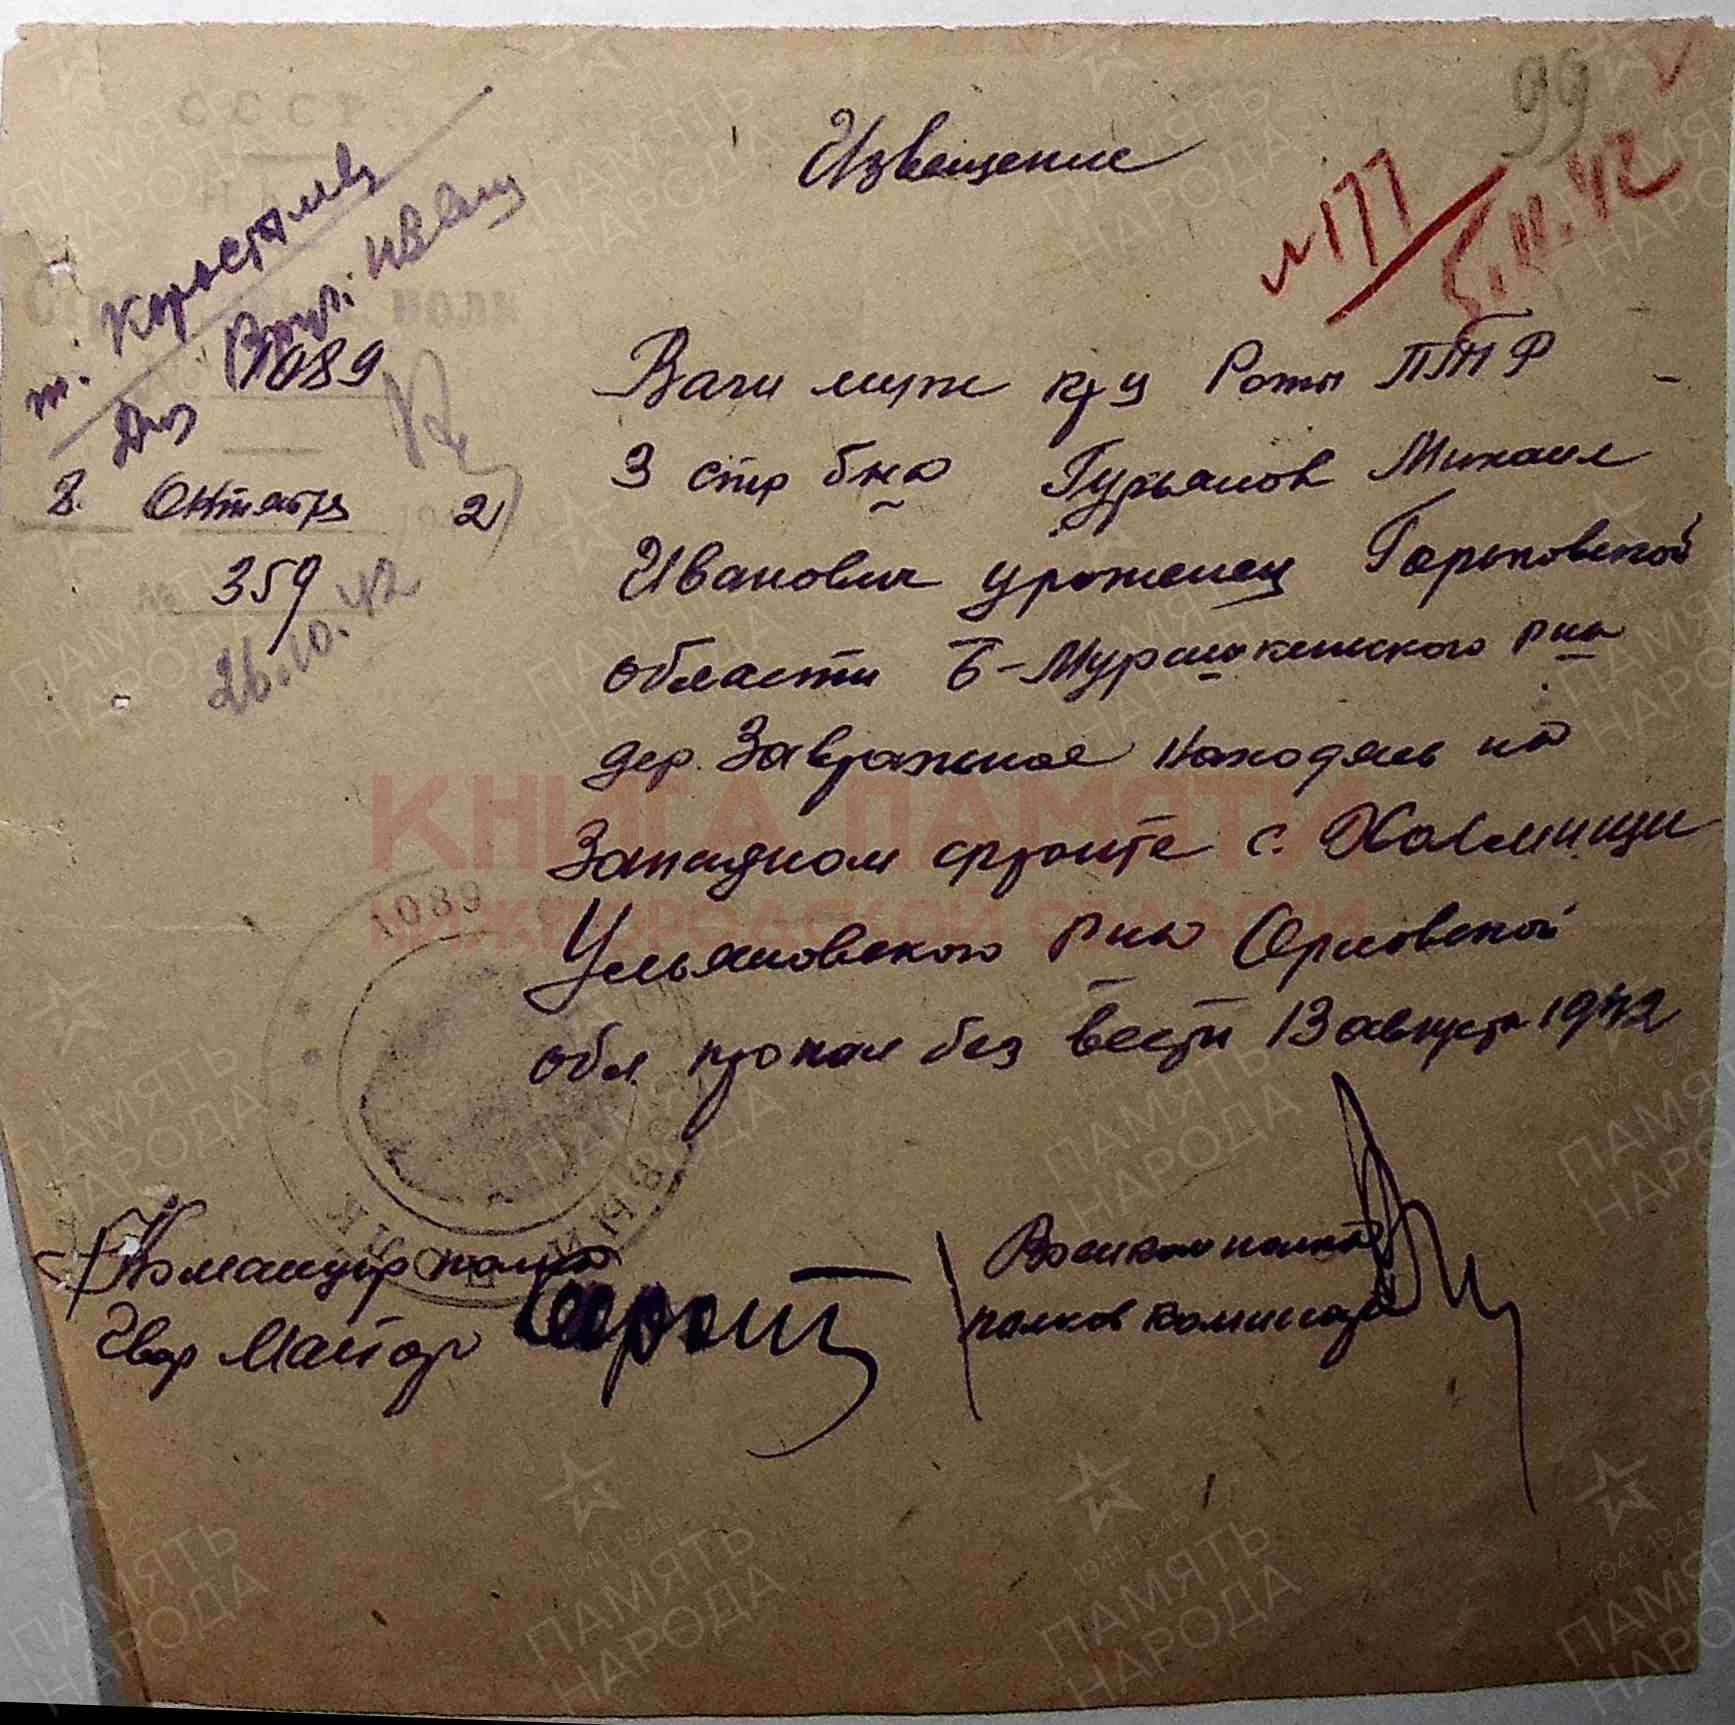 99
СССР
Извещение
№ 177
5.11.42
т.
Для
1089
8. Октября 2
359
26.10.42
Ваш муж кр-ц Роты ПТР
3 стр б-на Гурьянов Михаил
Иванович уроженец Горьковской
области Б-Мурашкинского р-на
дер. Завражное находясь на
Западном фронте с.
Ульяновского р-на Орловской
обл. пропал без вести 13 августа 1942
1089
Командир полка
Гвар Майор
Военком полка
полков комиссар
КНИГА ПАМЯТИ
НИЖЕГОРОДСКОЙ ОБЛАСТИ
ПАМЯТЬ
НАРОДА
1941-1945